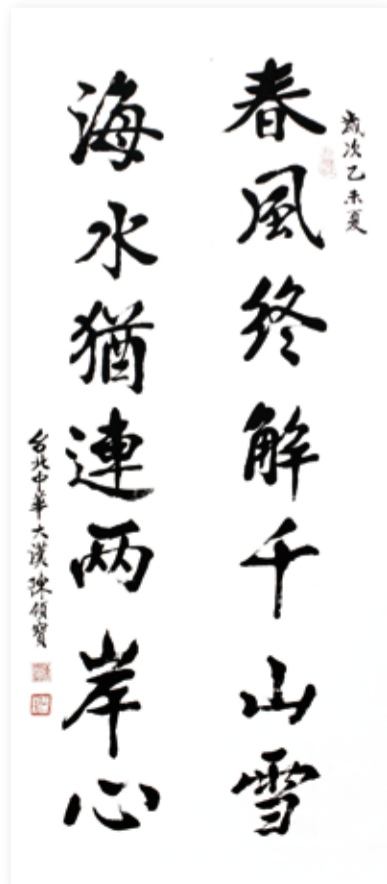 歲次乙未夏
春風終解千山雪
海水猶連两岸心
台北中華大漢陳領寶